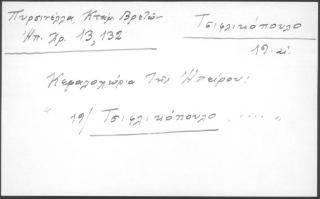 Πυρσινέλλα, Κταμ. Βρετῶν
Ἠπ. Χρ. 13, 132
Τσιφλικόπουλο
19. αἰ.
Κεφαλοχώρια τῆς Ἠπείρου:
" 19/ Τσιφλικόπουλο ..... "